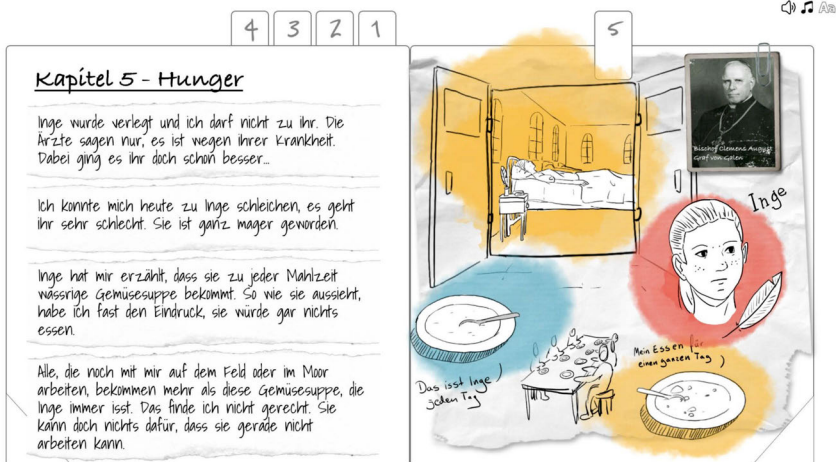 4 3 2 1
5
Aa
Kapitel 5 - Hunger
Inge wurde verlegt und ich darf nicht zu ihr. Die
Ärzte sagen nur, es ist wegen ihrer Krankheit.
Dabei ging es ihr doch schon besser...
Ich konnte mich heute zu Inge schleichen, es geht
ihr sehr schlecht. Sie ist ganz mager geworden.
Inge hat mir erzählt, dass sie zu jeder Mahlzeit
wässrige Gemüsesuppe bekommt. So wie sie aussieht,
habe ich fast den Eindruck, sie würde gar nichts
essen.
Alle, die noch mit mir auf dem Feld oder im Moor
arbeiten, bekommen mehr als diese Gemüsesuppe, die
Inge immer isst. Das finde ich nicht gerecht. Sie
kann doch nichts dafür, dass sie gerade nicht
arbeiten kann.
Bischof Clemens August
Graf von Galen
Inge
Das isst Inge
jeden Tag
Mein Essen für
einen ganzen Tag